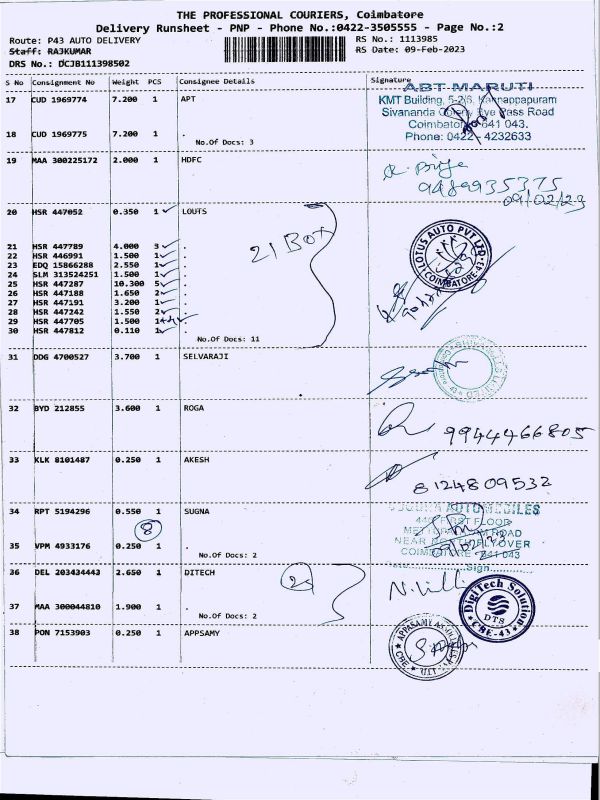 THE PROFESSIONAL COURIERS, Coimbatore
Delivery Runsheet - PNP - Phone No.:0422-3505555 - Page No.:2
Route: P43 AUTO DELIVERY RS No.: 1113985
Staff: RAJKUMAR RS Date: 09-Feb-2023
DRS No.: DCJB111398502
S No Consignment No Weight PCS Consignee Details Signature
ABT MARUTI
17 CUD 1969774 7.200 1 APT
KMT Building, 5-2/6, Kannappapuram
Sivananda Colony Bye Pass Road
Coimbatore - 641 043.
18 CUD 1969775 7.200 1 .
Phone: 0422 - 4232633
No.Of Docs: 3
19 MAA 300225172 2.000 1 HDFC
9489935375
09/02/23
20 HSR 447052 0.350 1 LOUTS
21 Box
LOTUS AUTO PVT LTD
COIMBATORE-43
21 HSR 447789 4.000 3 .
22 HSR 446991 1.500 1 .
23 EDQ 15866288 2.550 1 .
24 SLM 313524251 1.500 1 .
25 HSR 447287 10.300 5 .
26 HSR 447188 1.650 2 .
27 HSR 447191 3.200 1 .
28 HSR 447242 1.550 2 .
29 HSR 447705 1.500 1 .
30 HSR 447812 0.110 1 .
No.Of Docs: 11
31 DDG 4700527 3.700 1 SELVARAJI
32 BYD 212855 3.600 1 ROGA
9944466805
33 KLK 8101487 0.250 1 AKESH
8124809532
34 RPT 5194296 0.550 1 SUGNA
AUTOMOBILES
FIRST FLOOR
ROAD
8
NEAR FLYOVER
35 VPM 4933176 0.250 1 .
COIMBATORE - 641 043
No.Of Docs: 2
Sign
36 DEL 203434443 2.650 1 DITECH
DigiTech Solution
DTS
CBE-43
37 MAA 300044810 1.900 1 .
No.Of Docs: 2
38 PON 7153903 0.250 1 APPSAMY